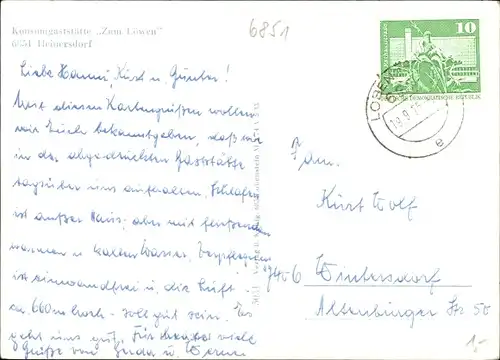 Konsumgaststätte „Zum Löwen"
6851 Heinersdorf
6851
10
DEUTSCHE DEMOKRATISCHE REPUBLIK
LOBEN
e
Liebe Hanni, Kurt u. Günter!
Mit diesen Kartengrüßen wollen
wir Euch bekanntgeben, daß wir
in der abgedruckten Gaststätte
tagsüber uns aufhalten. Schlafen
ist außer Haus, aber mit fließendem
warmen u. kalten Wasser. Verpflegung
ist einwandfrei u. die Luft -
ca. 600 m hoch - soll gut sein. Es
geht uns gut. Für heute viele
Grüße von Gerda u. Werner
Fam.
Kurt Wolf
7406 Wintersdorf
Altenburger Str 50
1,-